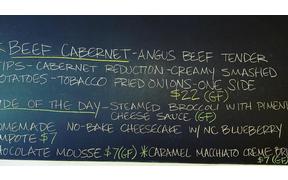 * BEEF CABERNET-ANGUS BEEF TENDER
TIPS-CABERNET REDUCTION-CREAMY SMASHED
POTATOES-TOBACCO FRIED ONIONS-ONE SIDE
$22 (GF)
DE OF THE DAY-STEAMED BROCCOLI WITH PIMEN
CHEESE SAUCE (GF)
OMEMADE NO-BAKE CHEESECAKE W/ NC BLUEBERRY
MPOTE $7
HOCOLATE MOUSSE $7(GF) *CARAMEL MACCHIATO CREME BRU
$7(GF)